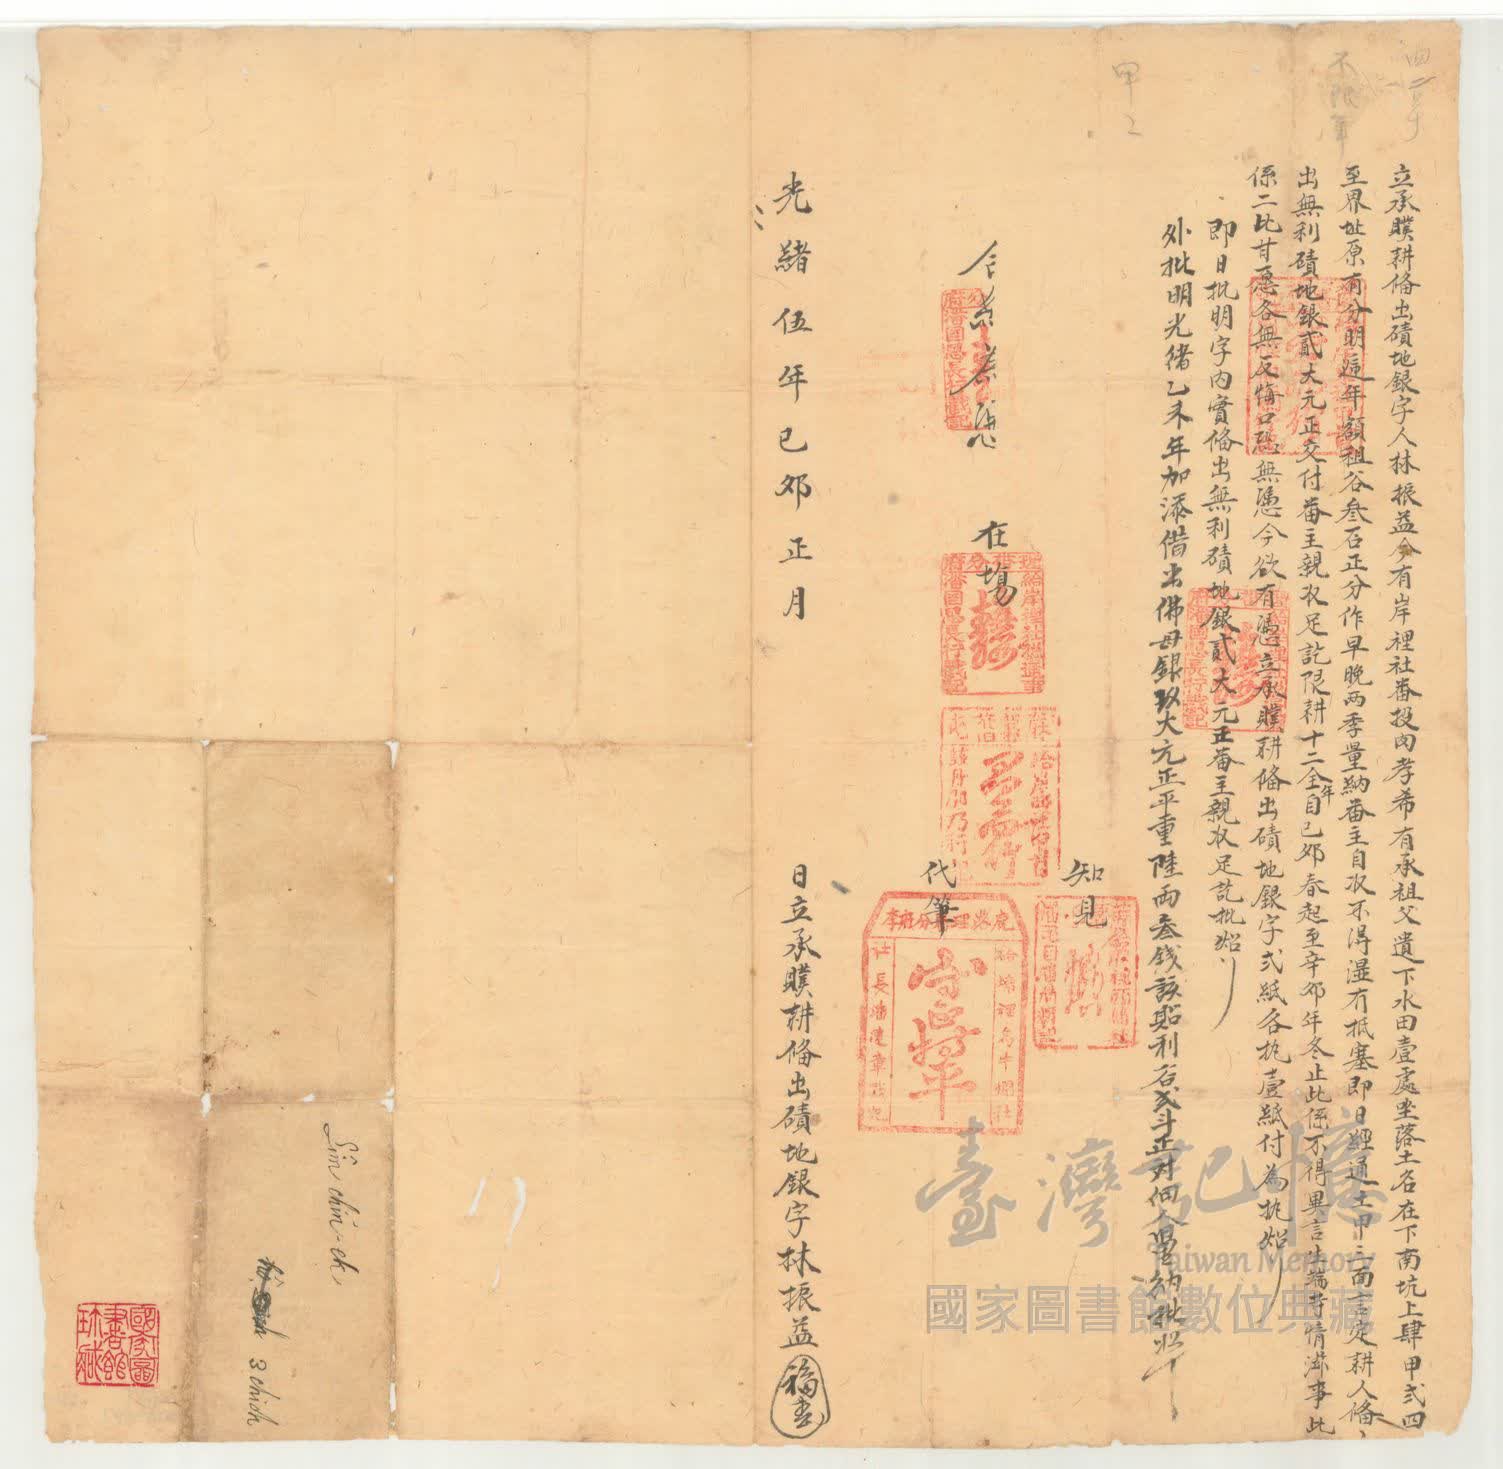 四
不限年
甲
立承贌耕偹出磧地銀字人林振益今有岸裡社番投肉孝希有承祖父遺下水田壹處坐落土名在下南坑上肆甲弍四
至界址原有分明逓年額租谷叁石正分作早晚两季量納番主自收不得湿有抵塞即日經通土甲三面言定耕人偹
出無利磧地銀貳大元正交付番主親收足訖限耕十二全年自己夘春起至辛夘年冬止此係不得異言生端苛情滋事此
係二比甘愿各無反悔口恐無憑今欲有憑立承贌耕偹出磧地銀字弍紙各执壹紙付為执炤
即日批明字內實偹出無利磧地銀貳大元正番主親收足訖批炤
外批明光緒乙未年加添借出佛母銀玖大元正平重陸両叁錢該貼利谷弍斗正对佃人量納批炤
知見
在場
代筆
守將平
光緒伍年己夘正月
日立承贌耕偹出磧地銀字林振益
福壽
Lîm chín-ek
3 chioh
國家圖書館珍藏
臺灣記憶
Taiwan Memory
國家圖書館數位典藏